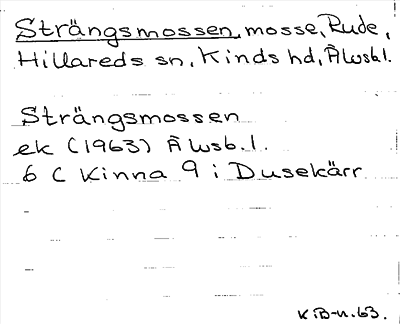 Strängsmossen, mosse, Rude,
Hillareds sn, Kinds hd, Älvsb.l.
Strängsmossen
ek (1963) Älvsb.l.
6 C Kinna 9 i Dusekärr
KB-n.63.